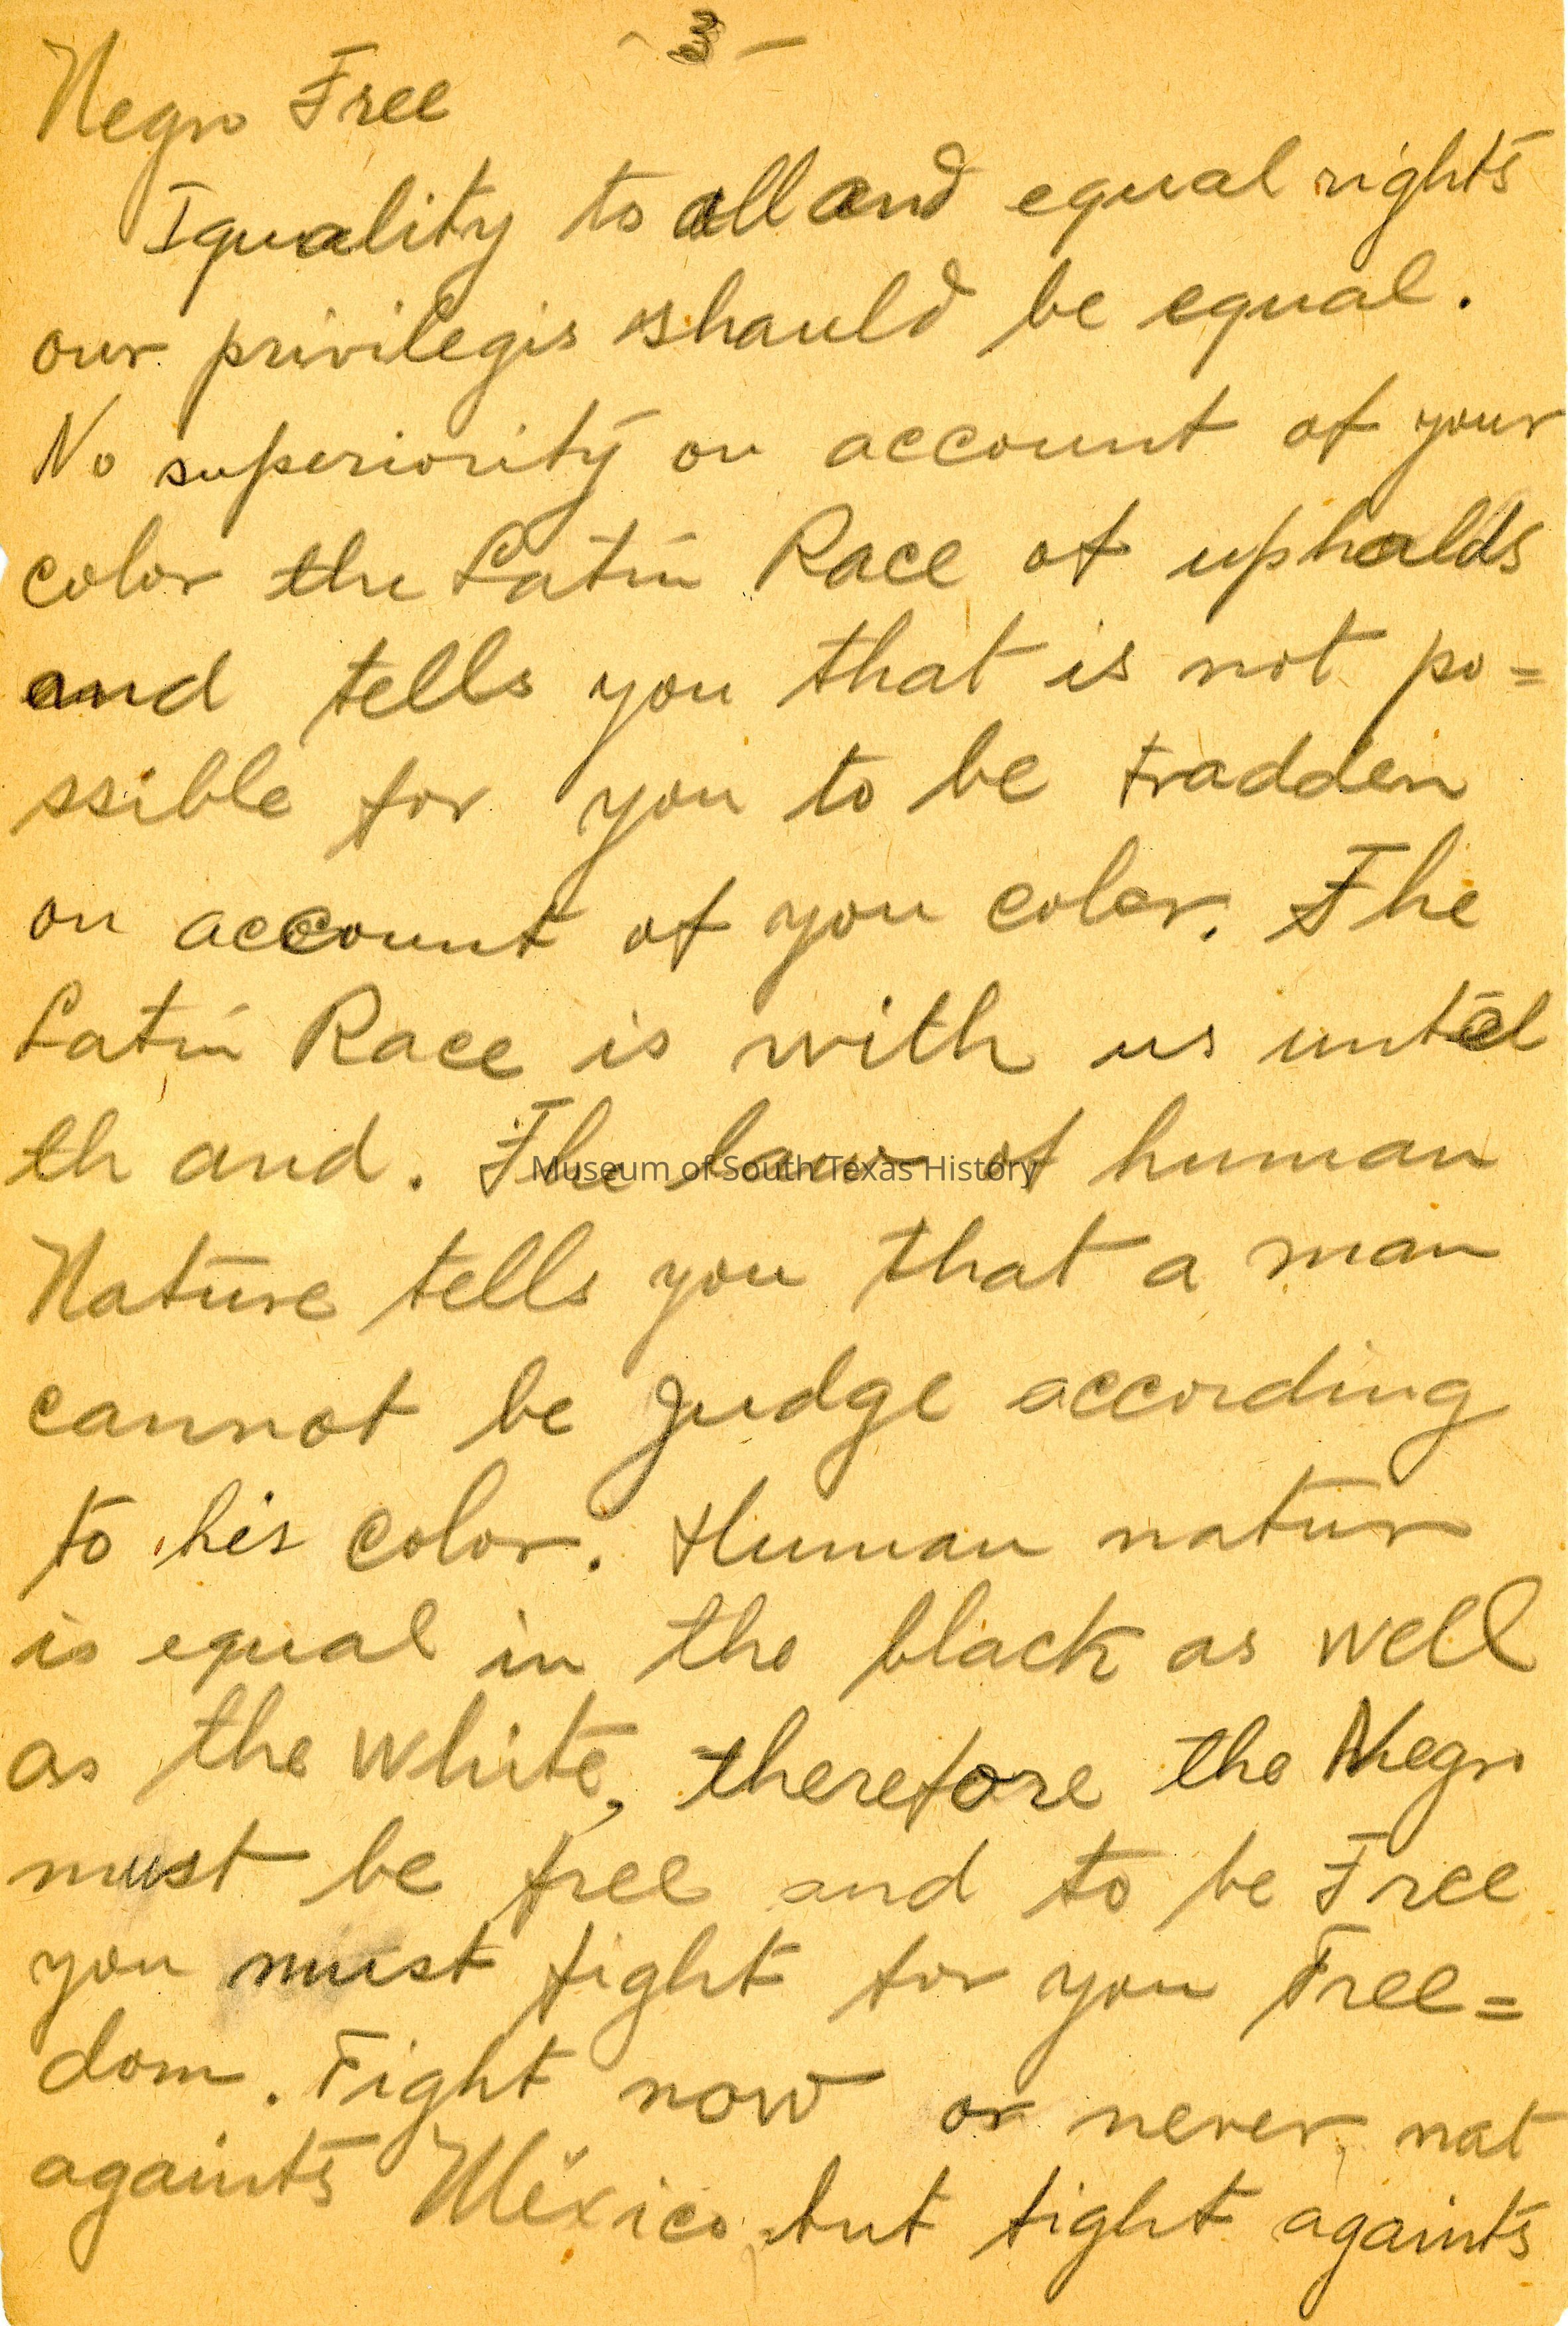 - 3 -
Negro Free
Iquality to all and equal rights
our privilegis should be equal.
No superiority on account of your
color the Latin Race of uphalds
and tells you that is not po=
ssible for you to be tradden
on account of you color. The
Latin Race is with us until
th and. The law of human
Nature tells you that a man
cannot be Judge according
to his color. Human natur
is equal in the black as well
as the White, therefore the Negro
must be free and to be Free
you must fight for you Free=
dom. Fight now or never, nat
againts México, but fight againts
Museum of South Texas History